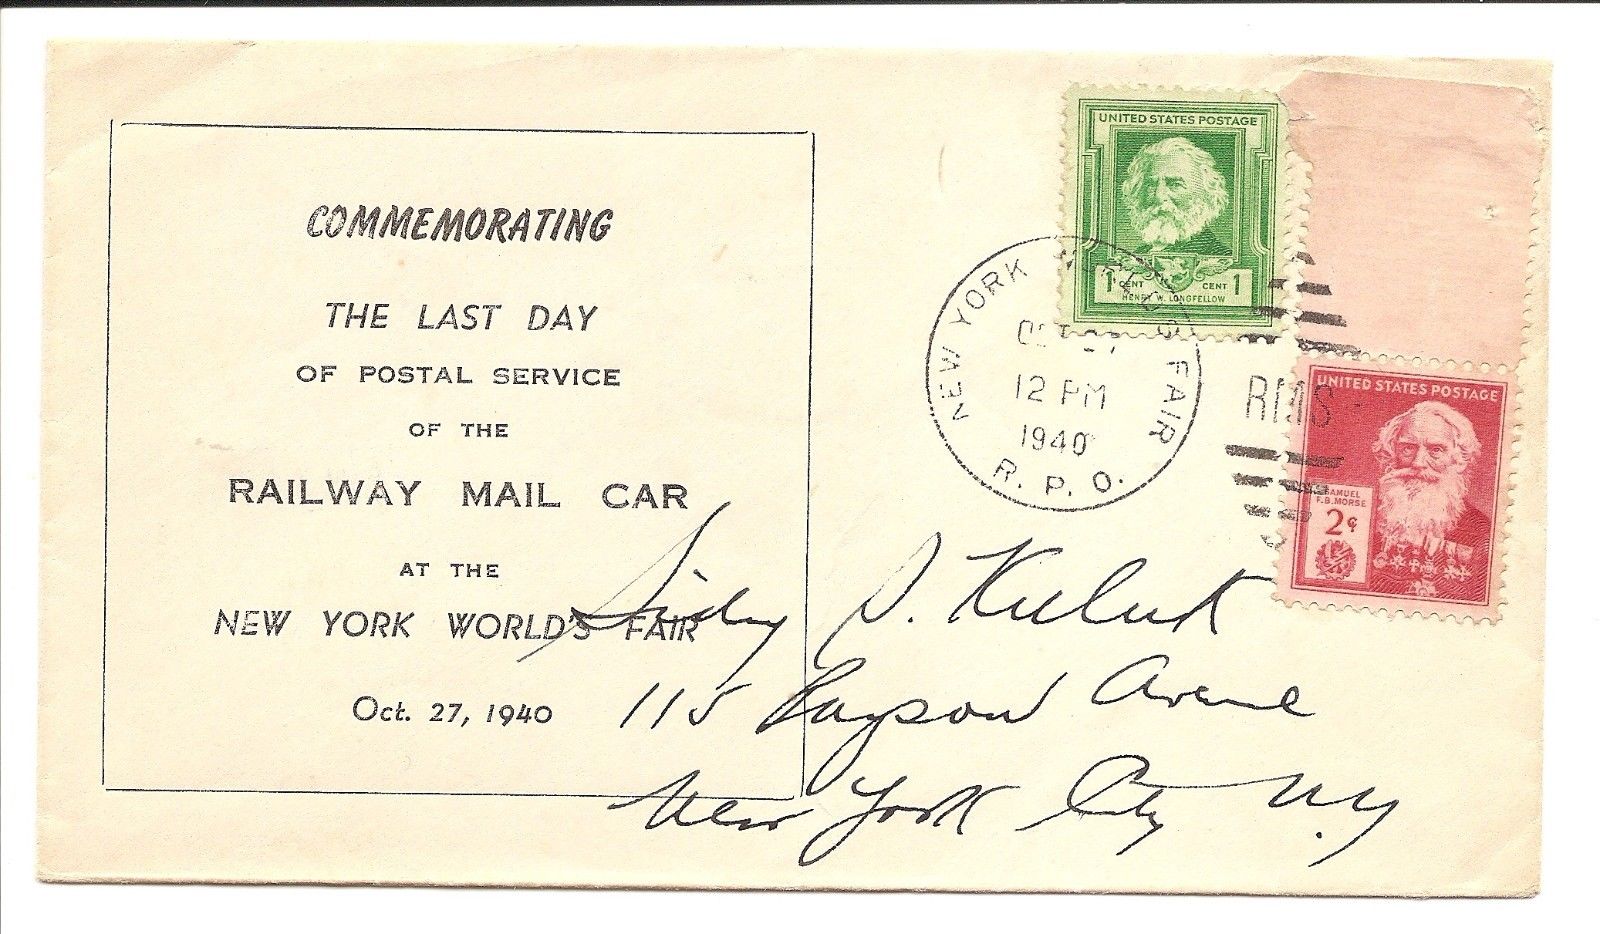 COMMEMORATING
THE LAST DAY
OF POSTAL SERVICE
OF THE
RAILWAY MAIL CAR
AT THE
NEW YORK WORLD'S FAIR
Oct. 27, 1940
UNITED STATES POSTAGE
1 CENT CENT 1
HENRY W. LONGFELLOW
NEW YORK WORLD'S FAIR
OCT
12 PM
1940
R. P. O.
RMS
UNITED STATES POSTAGE
SAMUEL
F.B. MORSE
2¢
Sidney S.
115 Avenue
New York City N.Y.